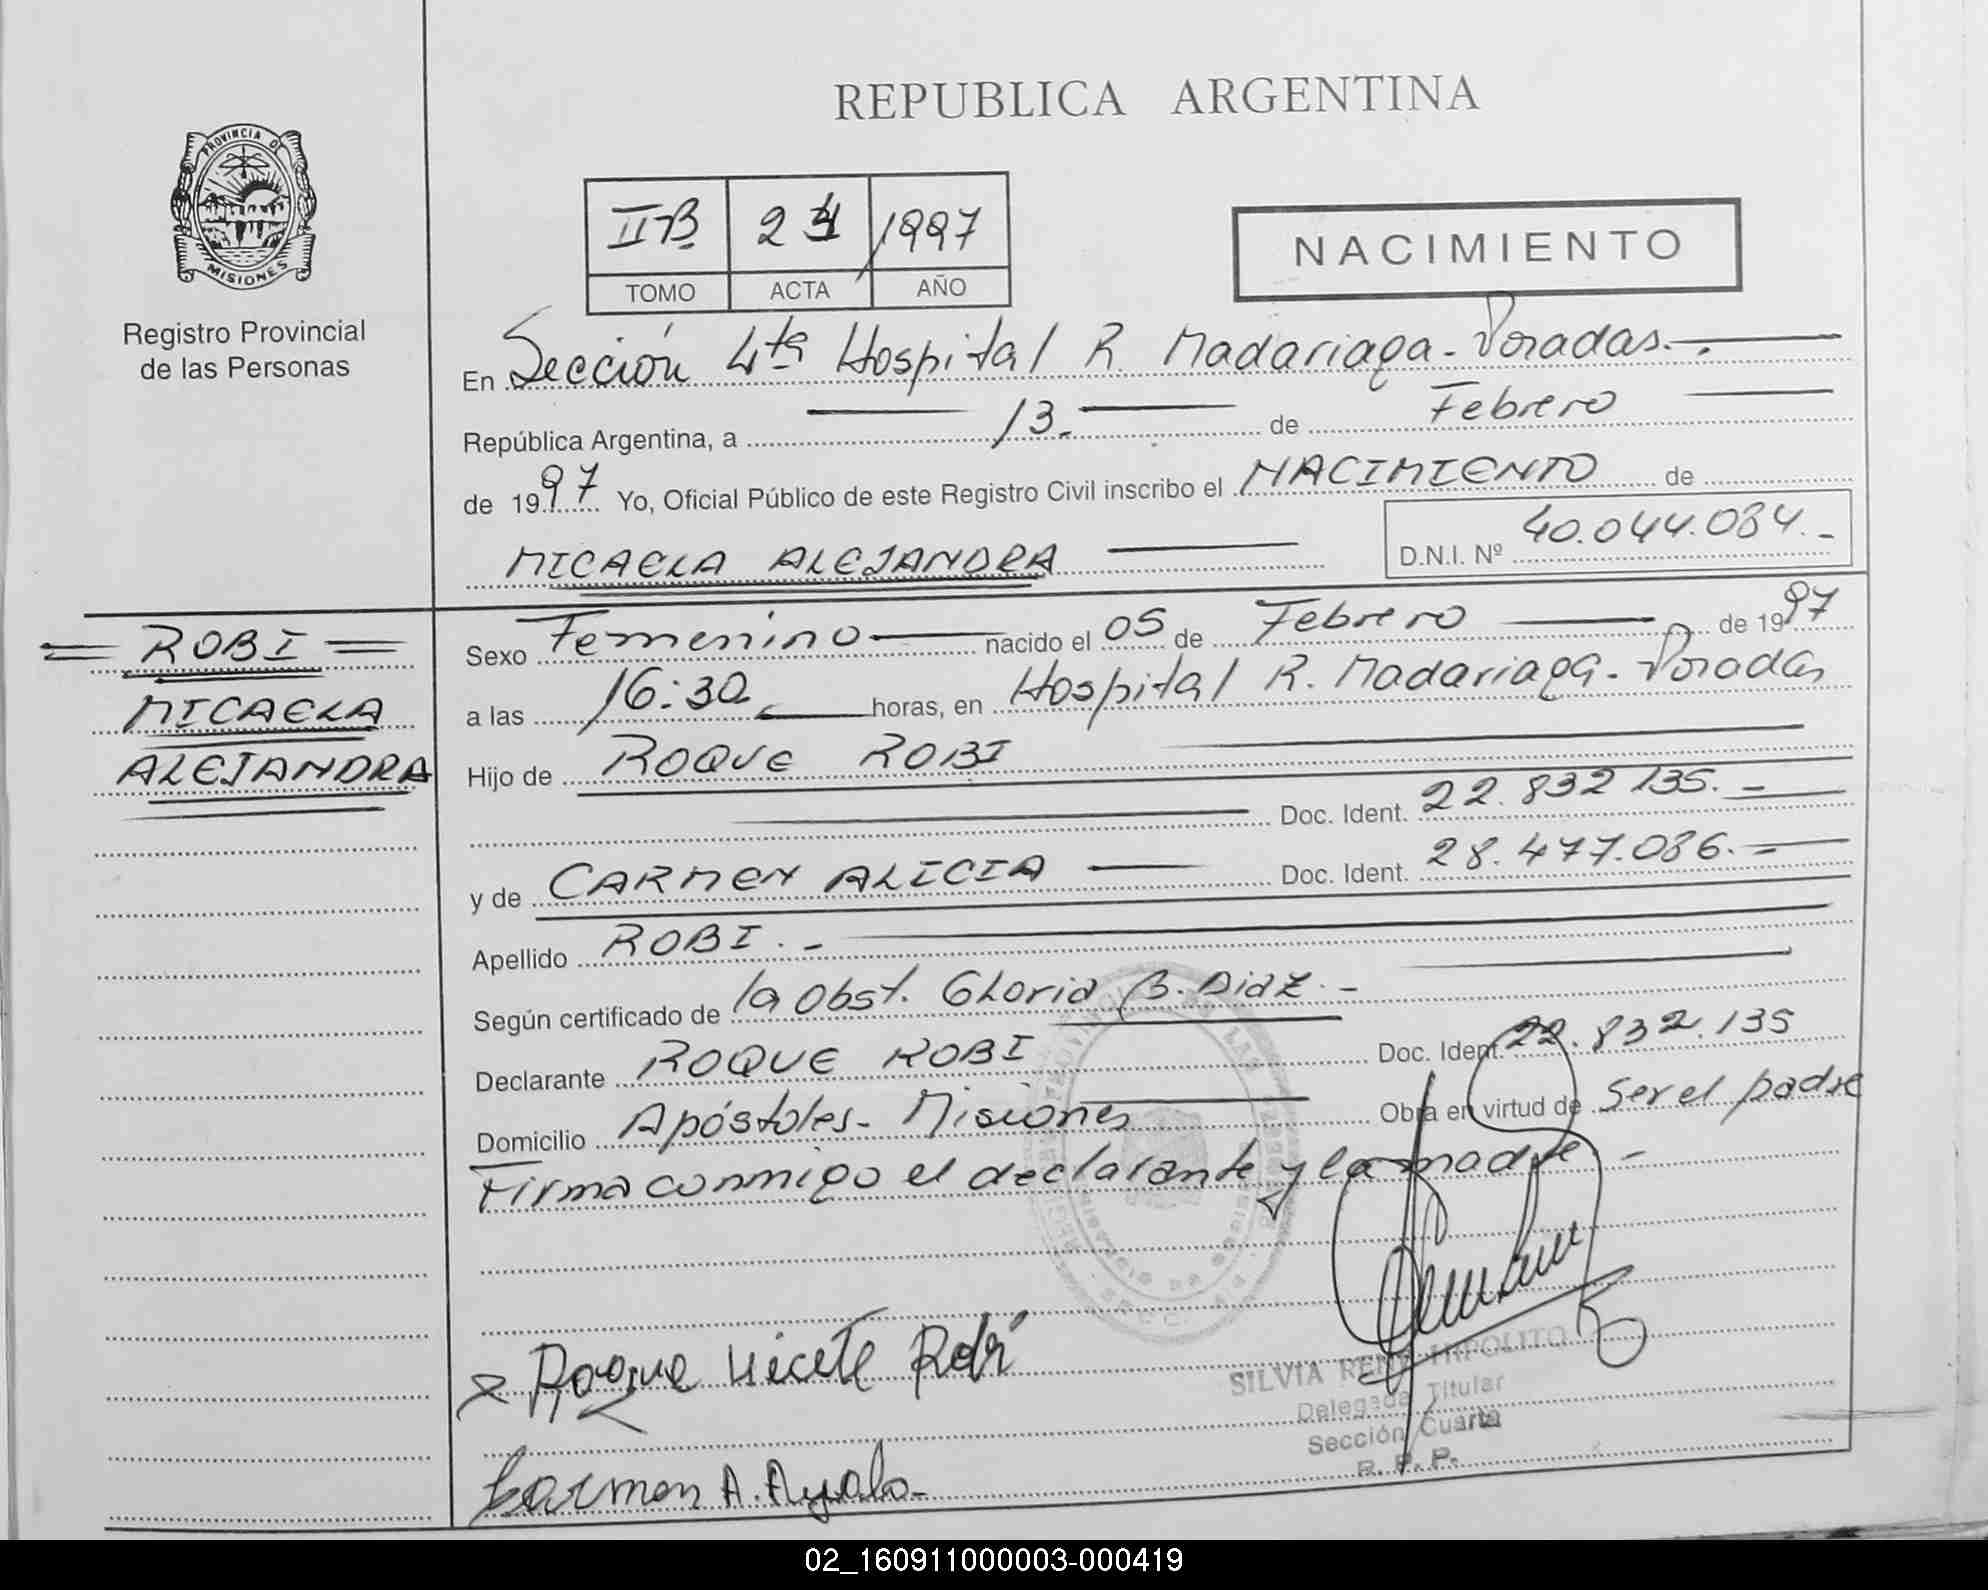 REPUBLICA ARGENTINA
PROVINCIA DE
MISIONES
Registro Provincial
de las Personas
II B 1997
TOMO ACTA AÑO
NACIMIENTO
En Sección 4ta Hospital R. Madariaga - Posadas. -
República Argentina, a 13. de Febrero
de 1997 Yo, Oficial Público de este Registro Civil inscribo el NACIMIENTO de
MICAELA ALEJANDRA D.N.I. Nº 40.044.084. -
= ROBI =
MICAELA
ALEJANDRA
Sexo Femenino nacido el 05 de Febrero de 1997
a las 16:30 horas, en Hospital R. Madariaga - Posadas
Hijo de ROQUE ROBI
Doc. Ident. 22.832 135. -
y de CARMEN ALICIA Doc. Ident. 28.477.086. -
Apellido ROBI. -
Según certificado de la Obst. Gloria B. Diaz. -
Declarante ROQUE ROBI Doc. Ident. 22.832.135
Domicilio Apóstoles - Misiones Obra en virtud de Ser el padre
Firma conmigo el declarante y la madre. -
Roque Robi
Carmen A. Ayala -
SILVIA HIPOLITO
Delegada Titular
Sección Cuarta
R. P. P.
02_160911000003-000419